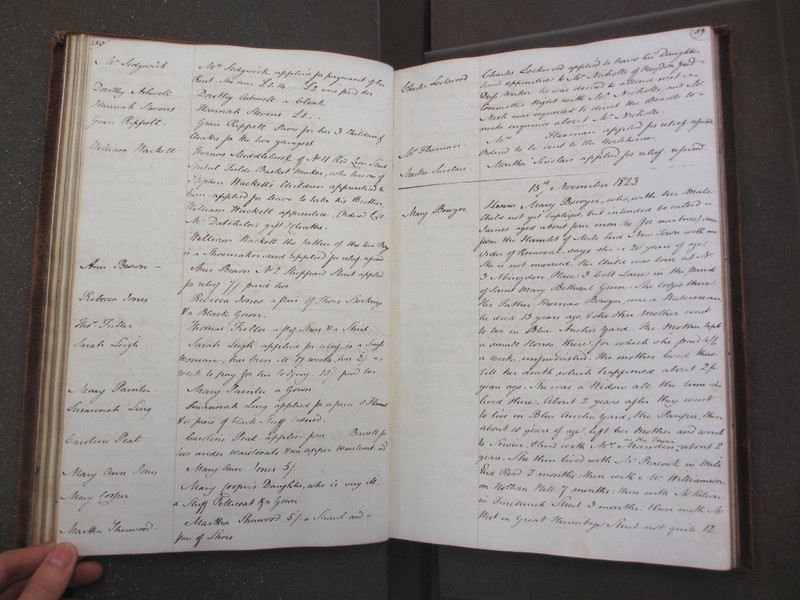 58
Mrs Sedgwick
Mrs Sedgwick applied for payment of her
Rent. She owes £1.14 - £2 was paid her
Dorothy Ashwell
Dorothy Ashwell a Cloak
Hannah Stevens
Hannah Stevens £1..
Grace Rippett
Grace Rippett Shoes for her 3 Children &
Cloaths for the two youngest
William Hackett
Thomas Muddlebrook of N 11 Red Lion Street
Spital Fields Basket Maker, who has one of
Stephen Hackett's Children apprenticed to
him applied for leave to take his Brother
William Hackett apprentice. Ordered
Mr Batchelor's gift & Cloaths.
William Hackett the father of the two Boys
is a Shoemaker and applied for relief refused
Ann Brown
Ann Brown N 2 Sheppard Street applied
for relief 7/- paid her
Rebecca Jones
Rebecca Jones a pair of Shoes Stockings
& a Black Gown.
Thos Fuller
Thomas Fuller a pr of Shoes & a Shirt.
Sarah Leigh
Sarah Leigh applied for relief is a Single
Woman, has been ill 17 weeks, has 2/- a
week to pay for her lodging. 10/- paid her
Mary Painter
Mary Painter a Gown
Susannah Ling
Susannah Ling applied for a piece of Flannel
& a piece of black Stuff ordered.
Caroline Peat
Caroline Peat applied for Barrett for
two under waistcoats & an upper waistcoat
Mary Ann Jones
Mary Ann Jones 5/-
Mary Cooper
Mary Cooper's Daughter, who is very ill
a Stuff Petticoat & a Gown
Martha Sherwood
Martha Sherwood 5/- a Shawl and a
pair of Shoes
59
Charles Lockwood
Charles Lockwood applied to leave his Daughter
bound apprentice to Mr Nicholls of Haydon Yard
he was desired to attend next
Committee Night with Mr Nicholls, and Mr
Nash was requested to direct the Beadle to
make enquiries about Mr Nicholls.
Mrs Harman
Mrs Harman applied for relief refused
Ordered to be sent to the Workhouse.
Martha Sinclair
Martha Sinclair applied for relief refused.
13th November 1823
Mary Bowyer
Mary Bowyer, who, with her Male
Child not yet baptized, but intended to be called
James aged about four months (no mixture) came
from the Hamlet of Mile End New Town with an
Order of Removal, says she is 20 years of age;
She is not married. Her Child was born at N
3 Abingdon Place, 3 Colt Lane in the Parish
of Saint Mary Bethnal Green. She lodged there.
Her Father Thomas Bowyer, was a Waterman
he died 13 years ago & the Mother went
to live in Blue Anchor Yard. The Mother kept
a small House there for which she paid
a week, unfurnished. The mother lived there
till her death which happened about 2½
years ago. She was a Widow all the time she
lived there. About 2 years after they went
to live in Blue Anchor Yard, the Pauper, then
about 10 years of age, left her Mother and went
to Service, & lived with Mrs in the Tower about 2
years. She then lived with Mr Peacock in Mile
End Road 2 months; then with Mr Williamson
on Holborn Hill 7 months; then with Mr
in Fenchurch Street 3 months; then with Mr
in Great Hermitage Street not quite 12